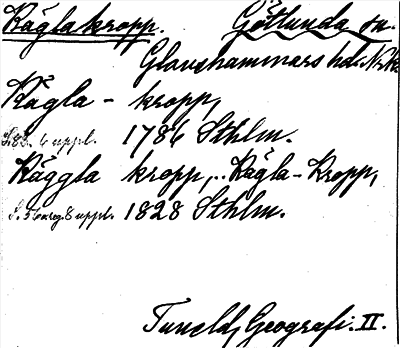 Käglakropp. Götlunda sn.
Glanshammars hd. Nrke
Kägla - kropp,
S. 82. 6 uppl. 1786 Sthlm.
Käggla kropp, .. Kägla-Kropp,
S. 56 reg. 8 uppl. 1828 Sthlm.
Tuneld, Geografi. II.